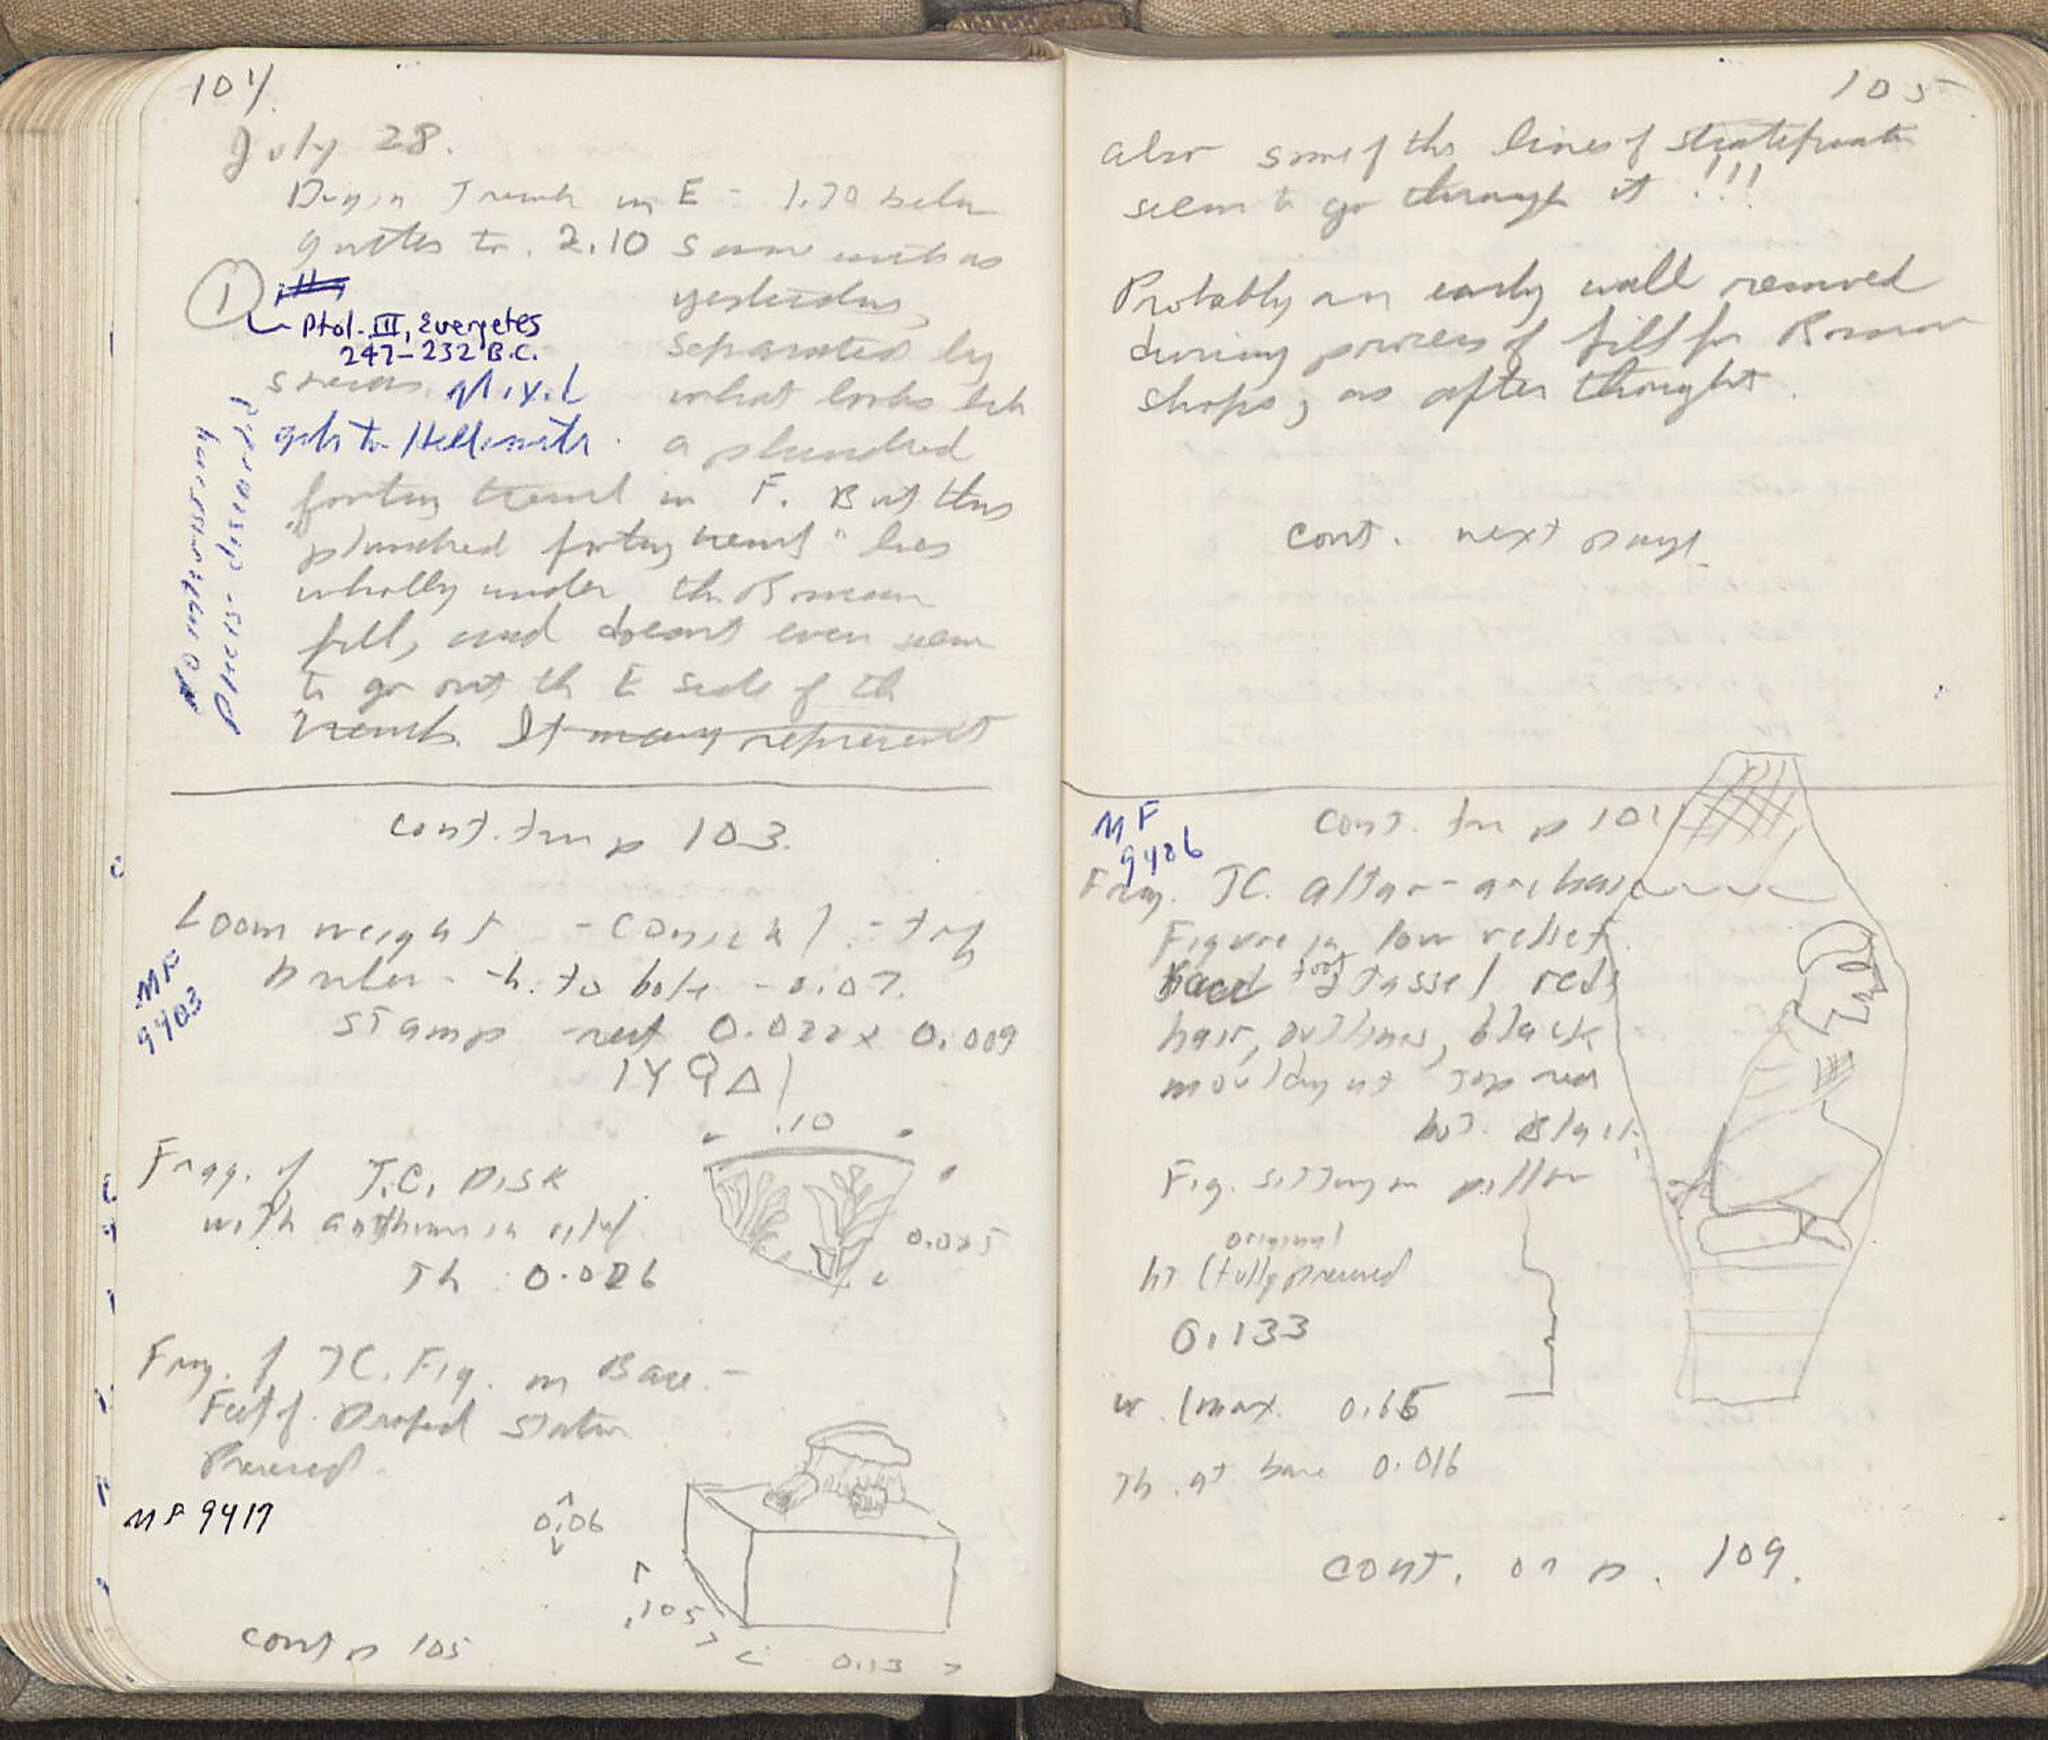 104
July 28.
Dig in Trench in E - 1.70 below
gutter to 2.10 same unit as
yesterday,
①
Ptol. III, Evergetes
247-232 B.C.
separated by
mixed
what looks like
gets to Hellenistic.
a plundred
footing trench in F. But this
"plundred footing trench" lies
wholly under the Roman
fill, and doesnt even seem
to go out the E side of the
trench. It may represent
cont. from p 103.
Loom weight - conical -
h. to hole - 0.07.
MF
9403
stamp rect 0.022 x 0.009
.10
Fragg. of T.C. Disk
with anthemion in relief
0.085
Th 0.026
Frag. of TC. Fig. on Base. -
Feet of Draped Statue
Preserved.
MF 9417
0.06
.105
0.13
cont p 105
105
also some of the lines of
seem to go through it !!!
Probably an early wall removed
during process of fill for Roman
shops, as after thought.
cont. next page.
MF
9406
cont. from p 104
Frag. TC. altar - arched
Figure in low relief.
foot tassel red,
hair, outlines, black
moulding at top red
bot. Black.
Fig. sitting on pillow
original
ht (fully preserved
0.133
w. (max. 0.65
Th. at base 0.016
cont. on p. 109.